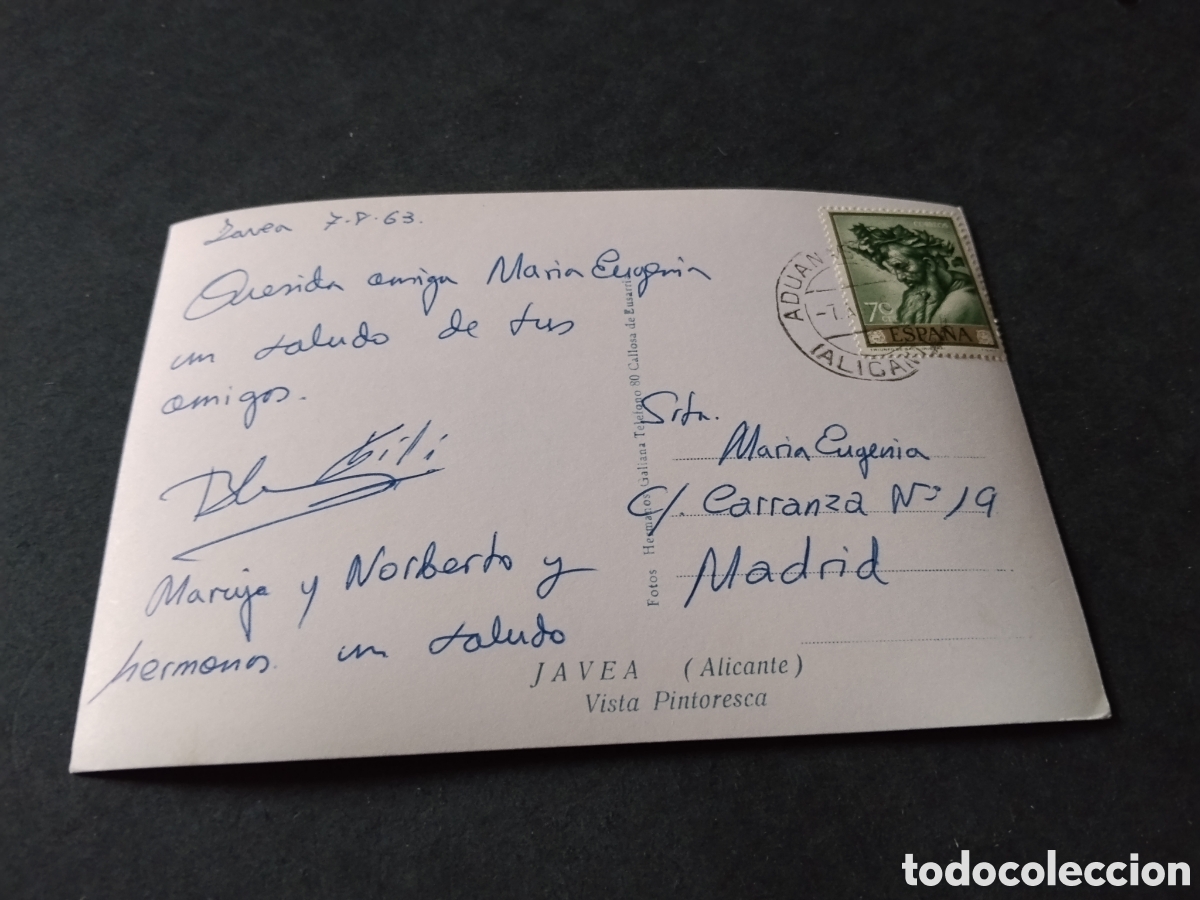 Javea 7-8-63.
Querida amiga Maria Eugenia
un saludo de tus
amigos.
Kili
Maruja y Norberto y
hermanos un saludo
Fotos Hermanos Galiana Teléfono 80 Callosa de Ensarriá
ADUAN
-7.
(ALICAN
7C
ESPAÑA
Srta.
Maria Eugenia
C/. Carranza Nº 19
Madrid
JAVEA (Alicante)
Vista Pintoresca
todocoleccion